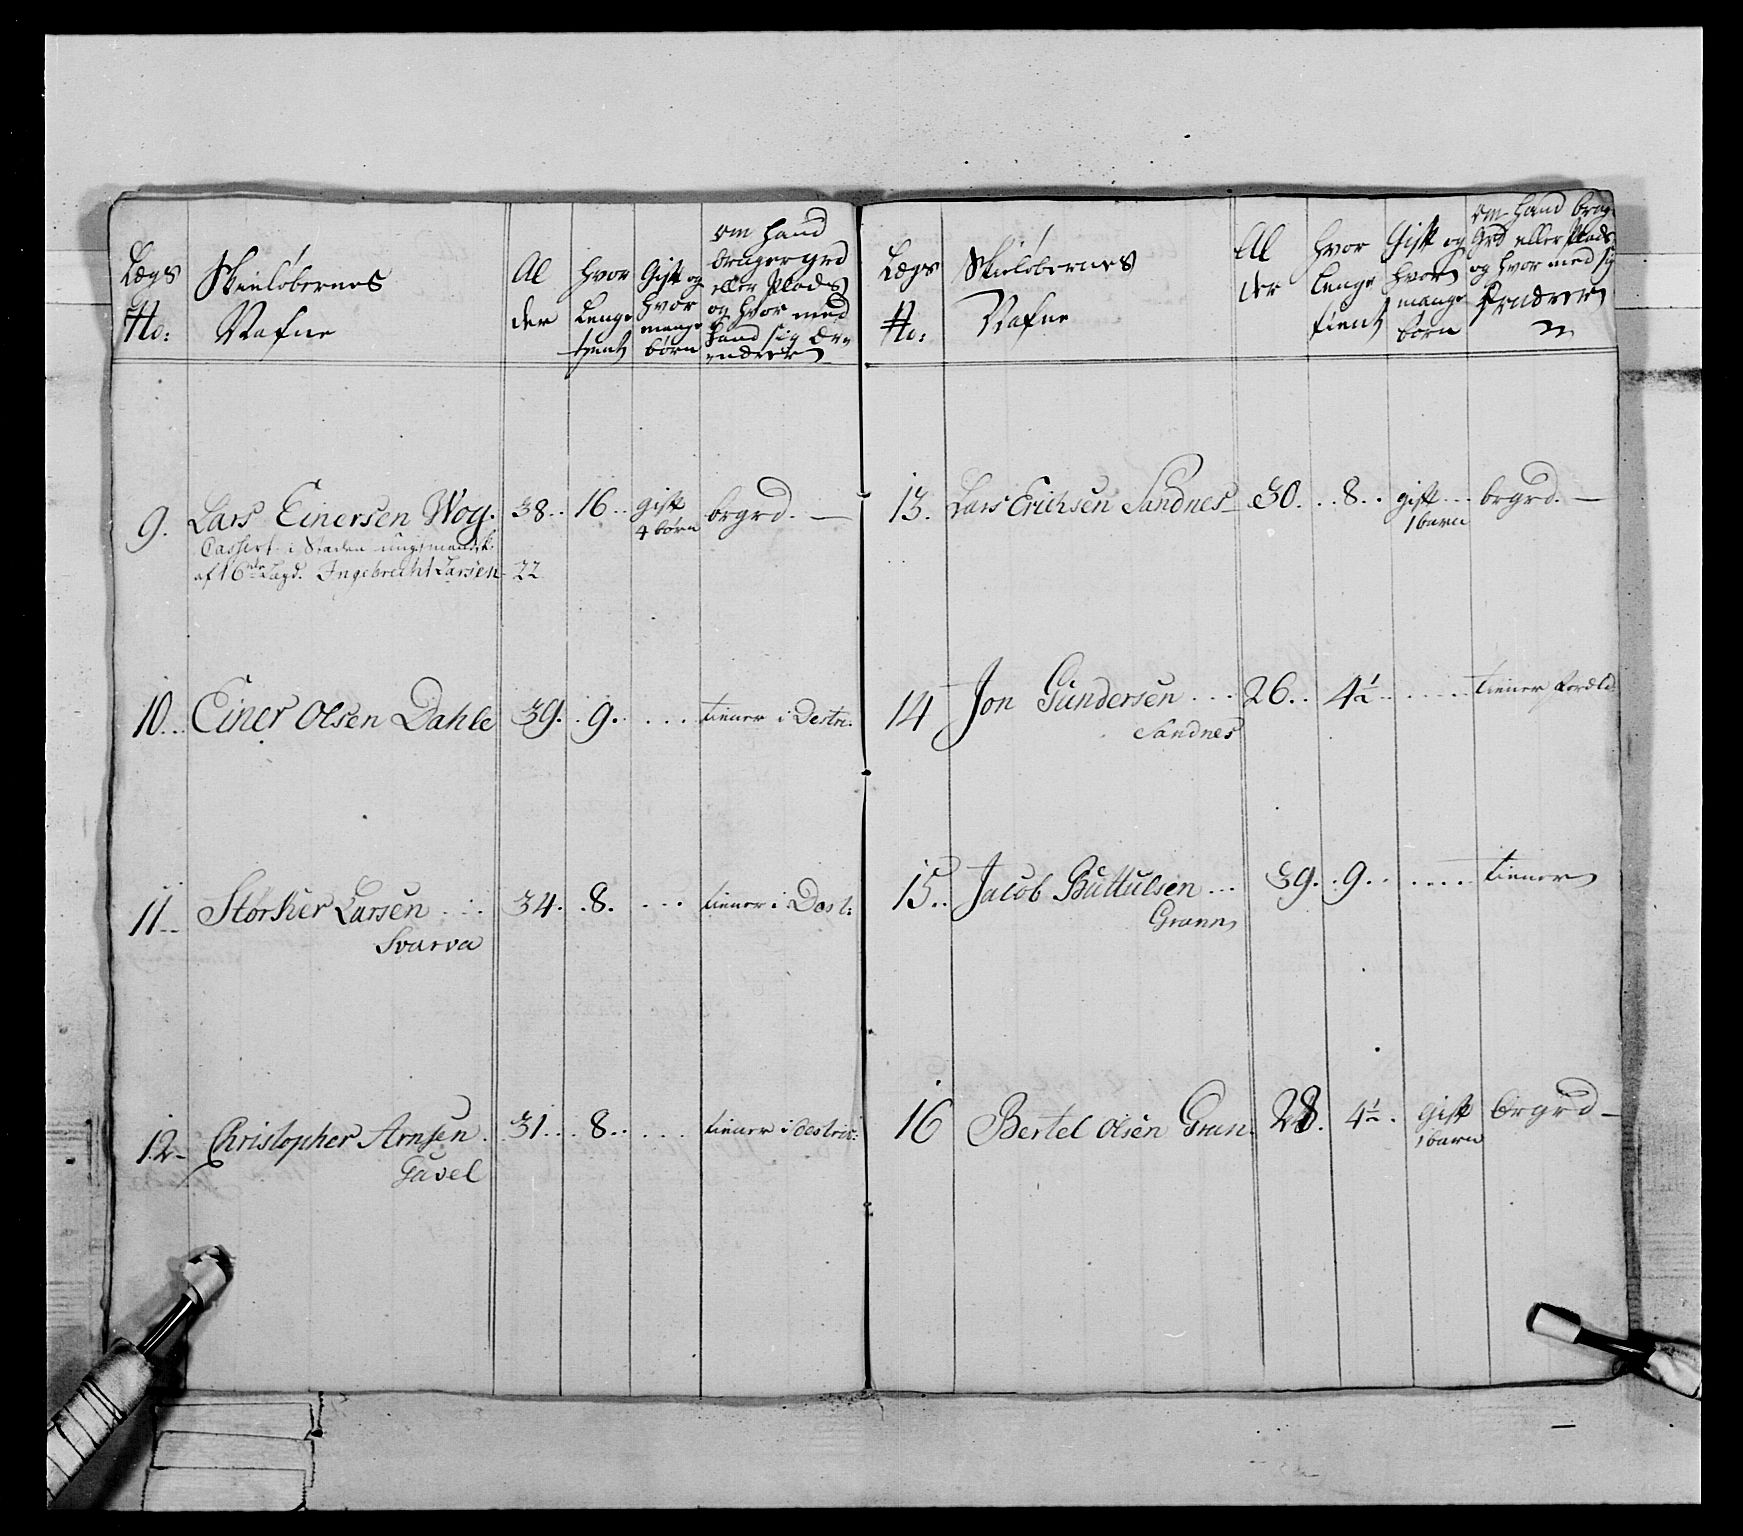 Lægs
No:
Skieløbernes
Nafne
Al
der
hvor
Lenge
tient
Gift og
hvor
mange
børn
om hand
brugergrd
eller Plads
og hvor med
hand sig Er=
nærer
9. Lars Einersen Wog. 38.. 16.. gift brgrd. —
4 børn
Cassert i Staden ungmandsk.
af 16de Lægd. Ingebrecht Larsen 22
10.. Einer Olsen Dahle 39. . 9. . . . tiener i Destr.
11.. Storker Larsen . . . 34. .8. . . . tiener i Dest:
Svarva
12- Christopher Arnsen. 31... 8.. . . . tiener i destric:
Gavel
Lægs
No:
Skieløbernes
Nafne
Al
der
hvor
Lenge
tient
Gift og
hvor
mange
børn
om hand brug.
Grd eller Plads
og hvor med sig
Ernærer
13. Lars Erichsen Sandnes 30. . .8. . gift... brgrd. —
1 barn
14 Jon Gundersen ... 26. . 4½ .... tiener foræld.
Sandnes
15.. Jacob Buttulsen ... 39. . 9. . ..... tiener
Grann
16 Bertel Olsen Gran. 28. 4½. gift brgrd —
1 barn